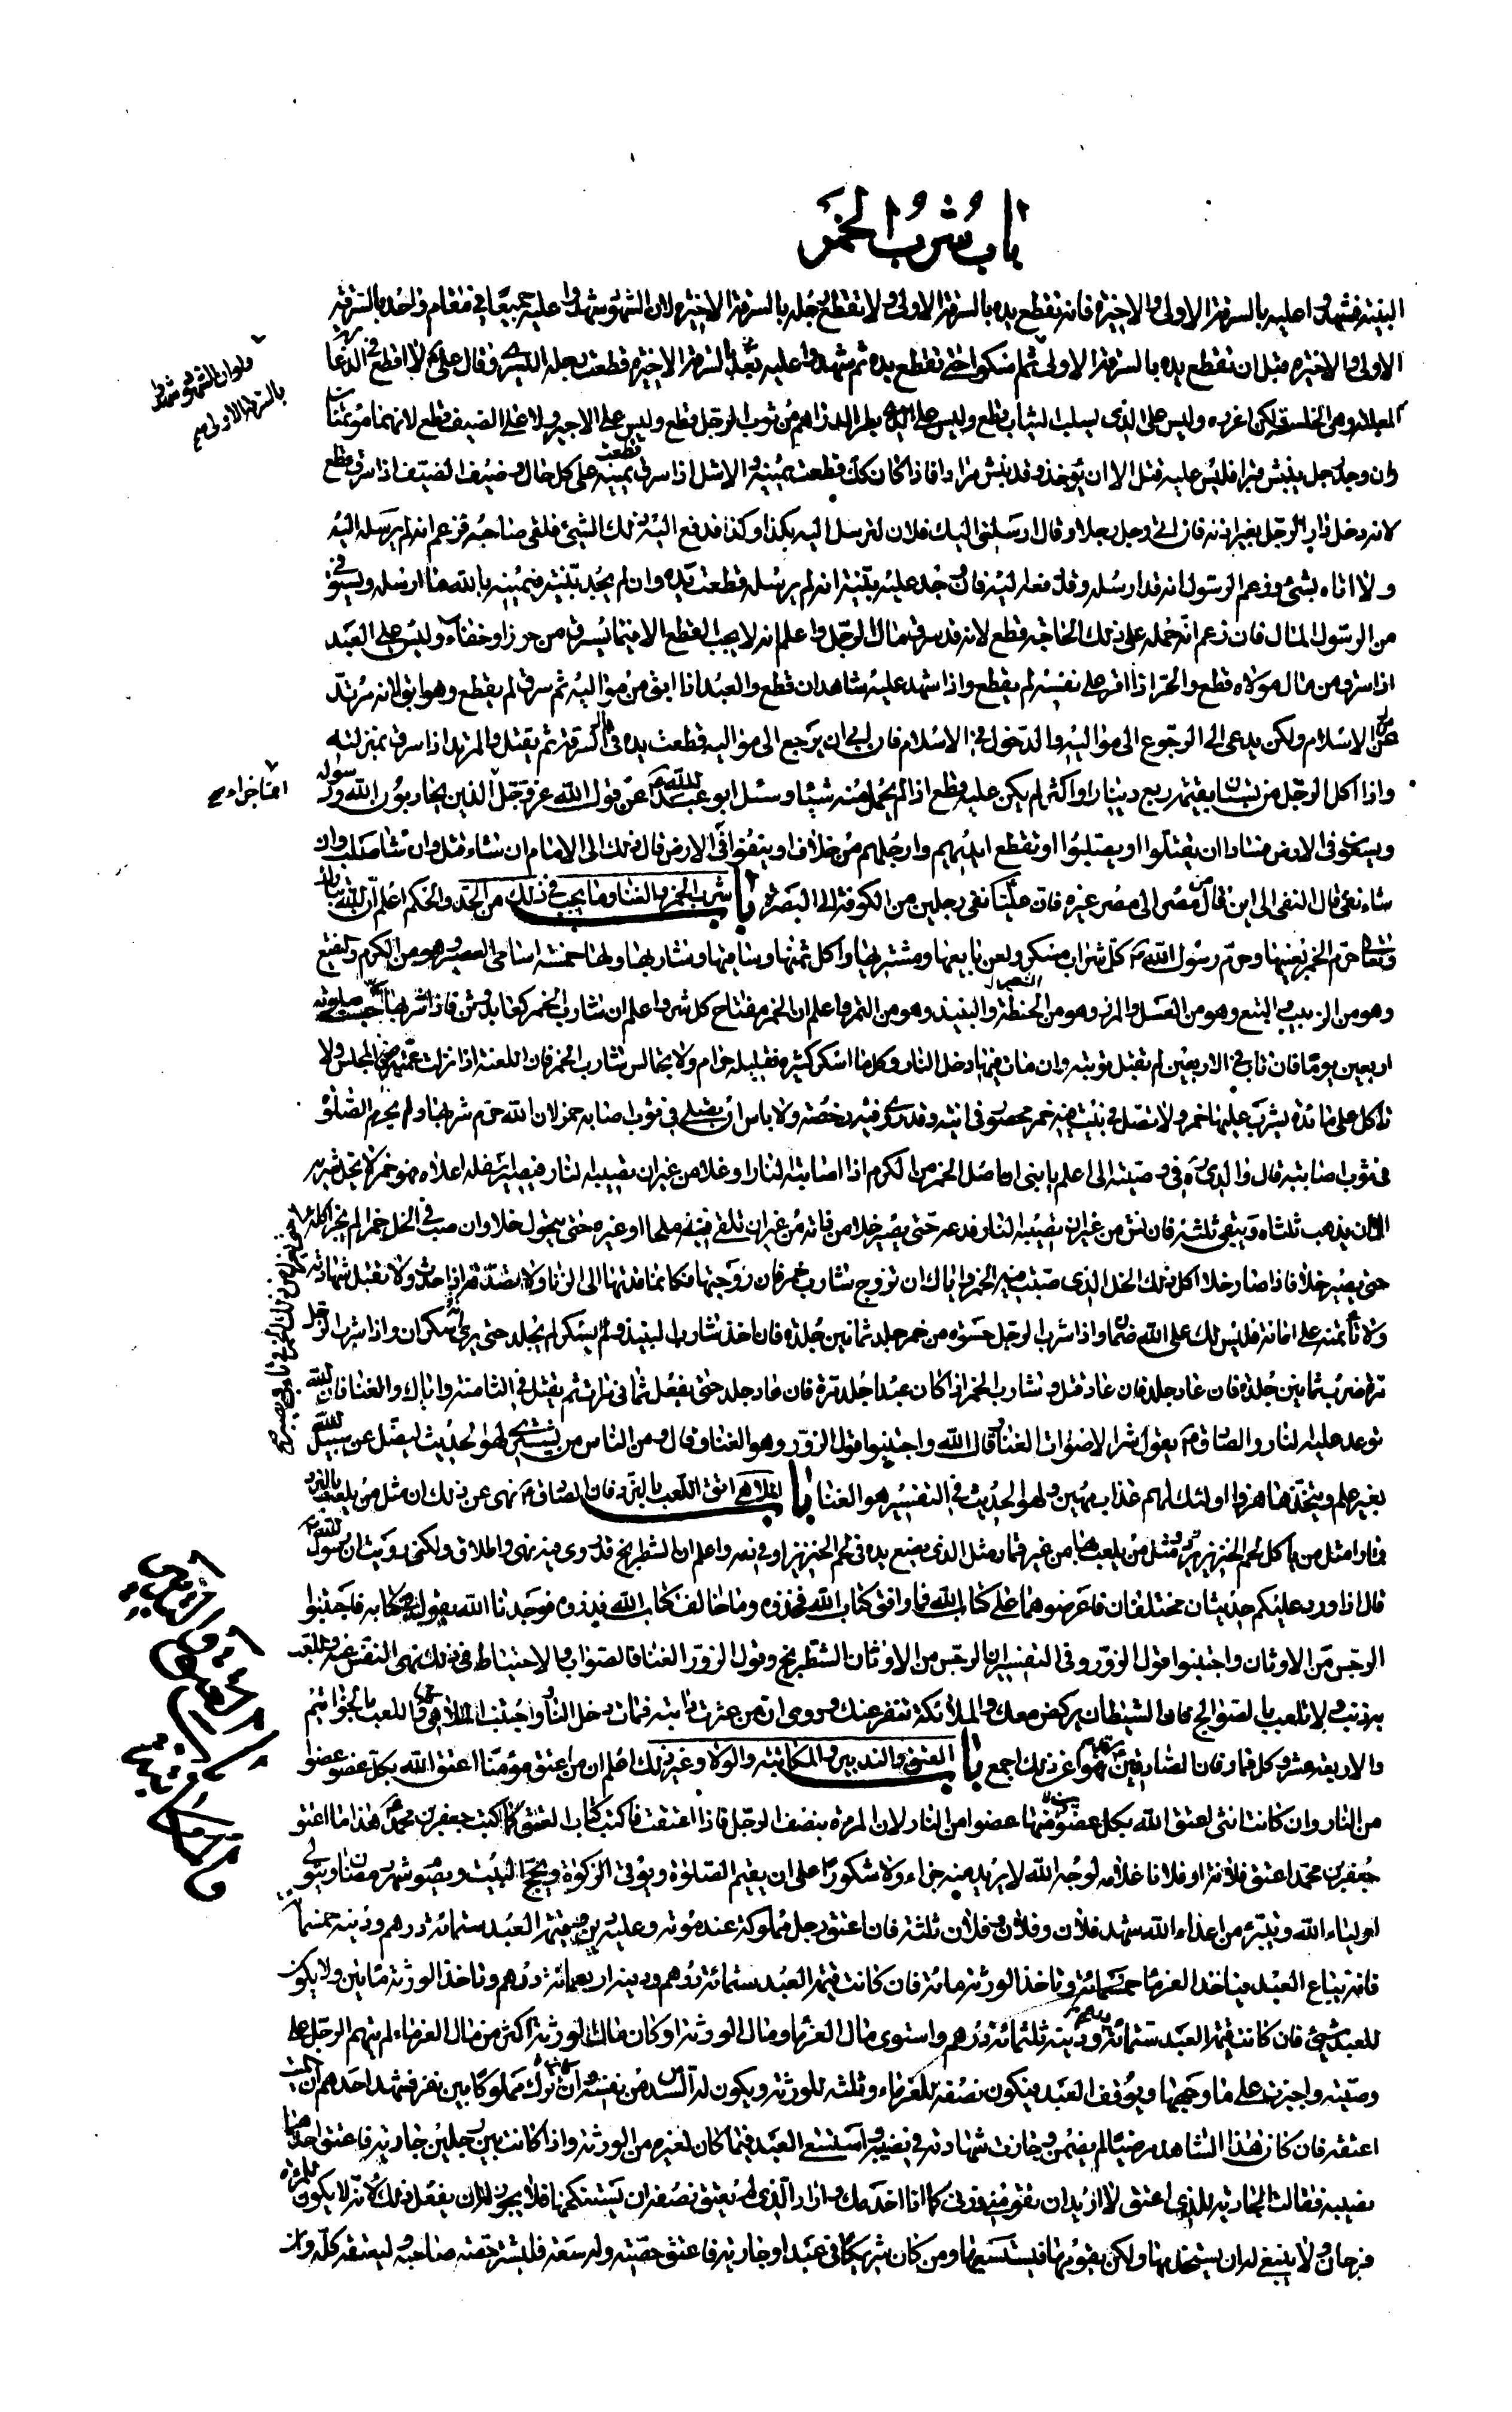 باب شرب الخمر
البينة فشهدوا عليه بالسرقة الاولى والاخيرة فانه تقطع يده بالسرقة الاولى ولا تقطع رجله بالسرقة الاخيرة لان الشهود شهدوا عليه جميعا في مقام واحد بالسرقة
الاولى والاخيرة قبل ان تقطع يده بالسرقة الاولى ثم امسكوا حتى تقطع يده ثم شهدوا عليه بعد بالسرقة الاخيرة قطعت رجله اليسرى وقال علي لا اقطع في الدغارة
المعلنة وهي الخلسة ولكن اعزره وليس على الذي يسلب الثياب قطع وليس على الذي يطر الدراهم من ثوب الرجل قطع وليس على الاجير ولا على الضيف قطع لانهما مؤتمنان
وان وجد رجل ينبش قبرا فليس عليه قتل الا ان يؤخذ وقد نبش مرارا فاذا كان كك قطعت يمينه والاشل اذا سرق قطعت يمينه على كل حال وضيف الضيف اذا سرق قطع
لانه دخل دار الرجل بغير اذنه فان اتى رجل رجلا وقال ارسلني اليك فلان لترسل اليه بكذا وكذا فدفع اليه ذلك الشيء فلقى صاحبه فزعم انه لم يرسله اليه
ولا اتاه بشيء وزعم الرسول انه قد ارسله وقد دفعه اليه فان وجد عليه بينة انه لم يرسله قطعت يده وان لم يجد بينة فيمينه بالله ما ارسله ويستوفى
من الرسول المال فان زعم انه حمله على ذلك الحاجة قطع لانه قد سرق مال الرجل واعلم انه لا يجب القطع الا فيما يسرق من حرز او خفاء وليس على العبد
اذا سرق من مال مولاه قطع والحر اذا اقر على نفسه لم يقطع واذا شهد عليه شاهدان قطع والعبد اذا ابق من مواليه ثم سرق لم يقطع وهو ابق لانه مرتد
عن الاسلام ولكن يدعى الى الرجوع الى مواليه والدخول في الاسلام فان ابى ان يرجع الى مواليه قطعت يده في السرقة ثم يقتل والمرتد اذا سرق بمنزلته
واذا اكل الرجل من بستان بقيمة ربع دينار او اكثر لم يكن عليه قطع اذا لم يحمل منه شيئا وسئل ابو عبد الله عن قول الله عز وجل الذين يحاربون الله ورسوله
ويسعون في الارض فسادا ان يقتلوا او يصلبوا او تقطع ايديهم وارجلهم من خلاف او ينفوا في الارض قال ذلك الى الامام ان شاء قتل وان شاء صلب وان
شاء نفى قال النفى الى اين قال من مصر الى مصر غيره فان عليا نفى رجلين من الكوفة الى البصرة باب شرب الخمر والغنا وما يجب في ذلك من الحد والحكم اعلم ان الله تبارك
وتعالى حرم الخمر بعينها وحرم رسول الله كل شراب مسكر ولعن بايعها ومشتريها واكل ثمنها وساقيها وشاربها ولها خمسة اسامى العصير وهو من الكرم والنقيع
وهو من الزبيب والبتع وهو من العسل والمزر وهو من الحنطة والنبيذ وهو من التمر واعلم ان الخمر مفتاح كل شر واعلم ان شارب الخمر كعابد وثن فاذا شربها حبست صلوته
اربعين يوما فان تاب في الاربعين لم تقبل توبته وان مات فيها دخل النار وكل ما اسكر كثيره فقليله حرام ولا تجالس شارب الخمر فان اللعنة اذا نزلت عمت من في المجلس ولا
تاكل على مائدة يشرب عليها خمر ولا تصل في بيت فيه خمر محصور في انية وقد روى فيه رخصة ولا باس ان تصلى في ثوب اصابه خمر لان الله حرم شربها ولم يحرم الصلوة
في ثوب اصابته قال والدي في وصيته الى اعلم يا بنى ان اصل الخمر من الكرم اذا اصابته النار او غلا من غير ان تصيبه النار فيصير اسفله اعلاه فهو خمر لا يحل شربه
الا ان يذهب ثلثاه ويبقى ثلثه فان نش من غير ان تصيبه النار فدعه حتى يصير خلا من ذاته من غير ان تلقى فيه ملحا او غيره حتى يتحول خلا وان صب في الخل خمر لم يجز اكله
حتى يصير خلا فاذا صار خلا اكل ذلك الخل الذي صب فيه الخمر واياك ان تزوج شارب خمر فان زوجتها فكانما قدتها الى الزنا ولا تصدقه اذا حدثك ولا تقبل شهادته
ولا تأتمنه على امانة فليس لك على الله ضمان واذا شرب الرجل حسوة من خمر جلد ثمانين جلدة فان اخذ شارب النبيذ ولم يسكر لم يجلد حتى يرى سكران واذا شرب الرجل
مرة ضرب ثمانين جلدة فان عاد جلد فان عاد قتل وشارب الخمر اذا كان عبدا جلد مرة فان عاد جلد حتى يفعل ثماني مرات ثم يقتل في الثامنة واياك والغنا فان الله
توعد عليه النار والصادق يقول شر الاصوات الغنا قال الله واجتنبوا قول الزور وهو الغنا وقال ومن الناس من يشترى لهو الحديث ليضل عن سبيل الله
بغير علم ويتخذها هزوا اولئك لهم عذاب مهين ولهو الحديث في التفسير هو الغنا باب الملاهى اتق اللعب بالنرد فان الصادق نهى عن ذلك ان مثل من يلعب بالنرد
قمارا مثل من ياكل لحم الخنزير ومثل من يلعب بها من غير قمار مثل الذي يضع يده في لحم الخنزير او في دمه واعلم ان الشطرنج قد روى فيه نهى واطلاق ولكنى رويت ان رسول الله
قال اذا ورد عليكم حديثان مختلفان فاعرضوهما على كتاب الله فما وافق كتاب الله فخذوه وما خالف كتاب الله فذروه فوجدنا الله يقول في كتابه فاجتنبوا
الرجس من الاوثان واجتنبوا قول الزور وفي التفسير ان الرجس من الاوثان الشطرنج وقول الزور الغنا فالصواب والاحتياط في ذلك نهى النفس عنه واللعب
به ذنب ولا تلعب بالصوالج فان الشيطان يركض معك والملائكة تنفر عنك وروى ان من عثرت دابته فمات دخل النار واجتنب الملاهى واللعب بالخواتيم
والاربعة عشر وكل قمار فان الصادقين نهوا عن ذلك اجمع باب العتق والتدبير والمكاتبة والولا وغير ذلك اعلم ان من اعتق مؤمنا اعتق الله بكل عضو عضوا
من النار وان كانت انثى اعتق الله بكل عضوين منها عضوا من النار لان المرءة بنصف الرجل فاذا اعتقت فاكتب كتاب العتق كما كتب جعفر بن محمد هذا ما اعتق
جعفر بن محمد اعتق فلانة او فلانا غلامه لوجه الله لا يريد منه جزاء ولا شكورا على ان يقيم الصلوة ويؤتى الزكوة ويحج البيت ويصوم شهر رمضان ويتولى
اولياء الله ويتبرء من اعداء الله شهد فلان وفلان وفلان ثلثة فان اعتق رجل مملوكه عند موته وعليه دين وقيمة العبد ستمائة درهم ودينه خمسمائة
فانه يباع العبد فياخذ الغرما خمسمائة وتاخذ الورثة مائة فان كانت قيمة العبد ستمائة درهم ودينه اربعمائة درهم وتاخذ الورثة مائتين ولا يكون
للعبد شيء فان كانت قيمة العبد ستمائة درهم ودينه ثلثمائة درهم واستوى مال الغرما ومال الورثة او كان مال الورثة اكثر من مال الغرماء لم يتهم الرجل على
وصيته واجيزت على ما وجهها ويوقف العبد فيكون نصفه للغرماء وثلثه للورثة ويكون له السدس من نفسه وان ترك مملوكا بين نفر فشهد احدهم ان الميت
اعتقه فان كان هذا الشاهد مرضيا لم يضمن وجازت شهادته في نصيبه واستسعى العبد فيما كان لغيره من الورثة واذا كانت بين رجلين جارية فاعتق احدهما
نصيبه فقالت الجارية للذي لم يعتق لا اريد ان تقومنى ذرنى كما انا اخدمك واراد الذي لم يعتق نصفه ان يستنكحها فلا يجوز له ان يفعل ذلك لانه لا يكون للمرءة
فرجان ولا ينبغى له ان يستخدمها ولكن يقومها فيستسعيها ومن كان شريكا في عبد او جارية فاعتق حصته وله سعة فليشتر حصة صاحبه ليعتقه كله وان
ولو ان الشهود شهدوا
بالسرقة الاولى صح